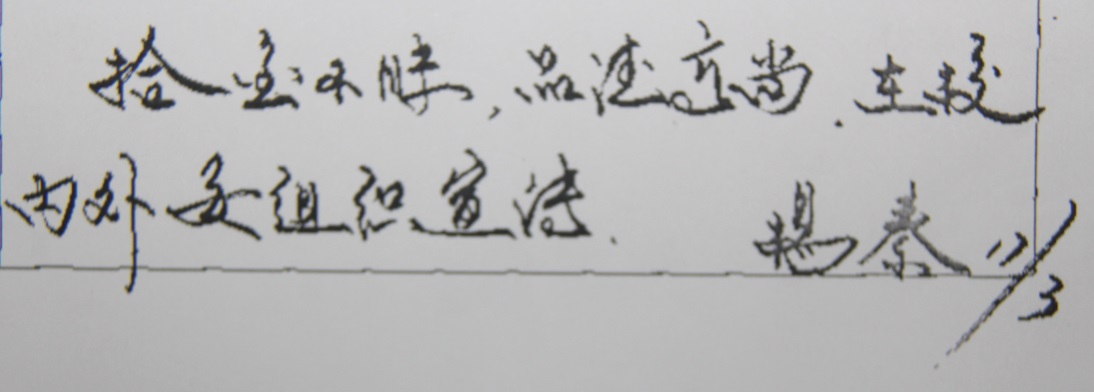 拾金不昧,品德高尚.在校
内外要组织宣传. 杨秦 17/3